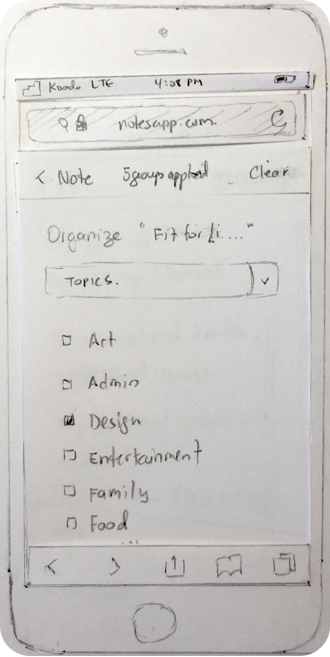 Koodo LTE 4:08 PM
notesapp.com
< Note 5 groups applied Clear
Organize "Fit for Li..."
TOPICS.
Art
Admin
Design
Entertainment
Family
Food